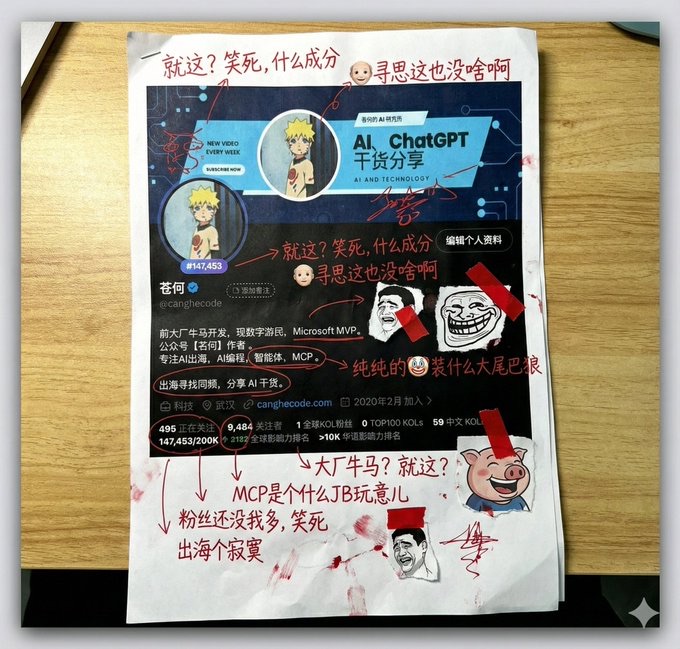 就这？笑死，什么成分
寻思这也没啥啊
苍何的 AI 研究所
NEW VIDEO
EVERY WEEK
SUBSCRIBE NOW
AI、ChatGPT
干货分享
AI AND TECHNOLOGY
#147,453
就这？笑死，什么成分
编辑个人资料
寻思这也没啥啊
苍何
添加备注
@canghecode
前大厂牛马开发，现数字游民，Microsoft MVP。
公众号【苍何】作者。
专注AI出海，AI编程，智能体、MCP。
纯纯的🤡装什么大尾巴狼
出海寻找同频，分享 AI 干货。
科技 武汉 canghecode.com 2020年2月 加入 >
495 正在关注 9,484 关注者 1 全球KOL粉丝 0 TOP100 KOLs 59 中文 KOL
147,453/200K 2182 全球影响力排名 >10K 华语影响力排名
大厂牛马？就这？
MCP是个什么JB玩意儿
粉丝还没我多，笑死
出海个寂寞